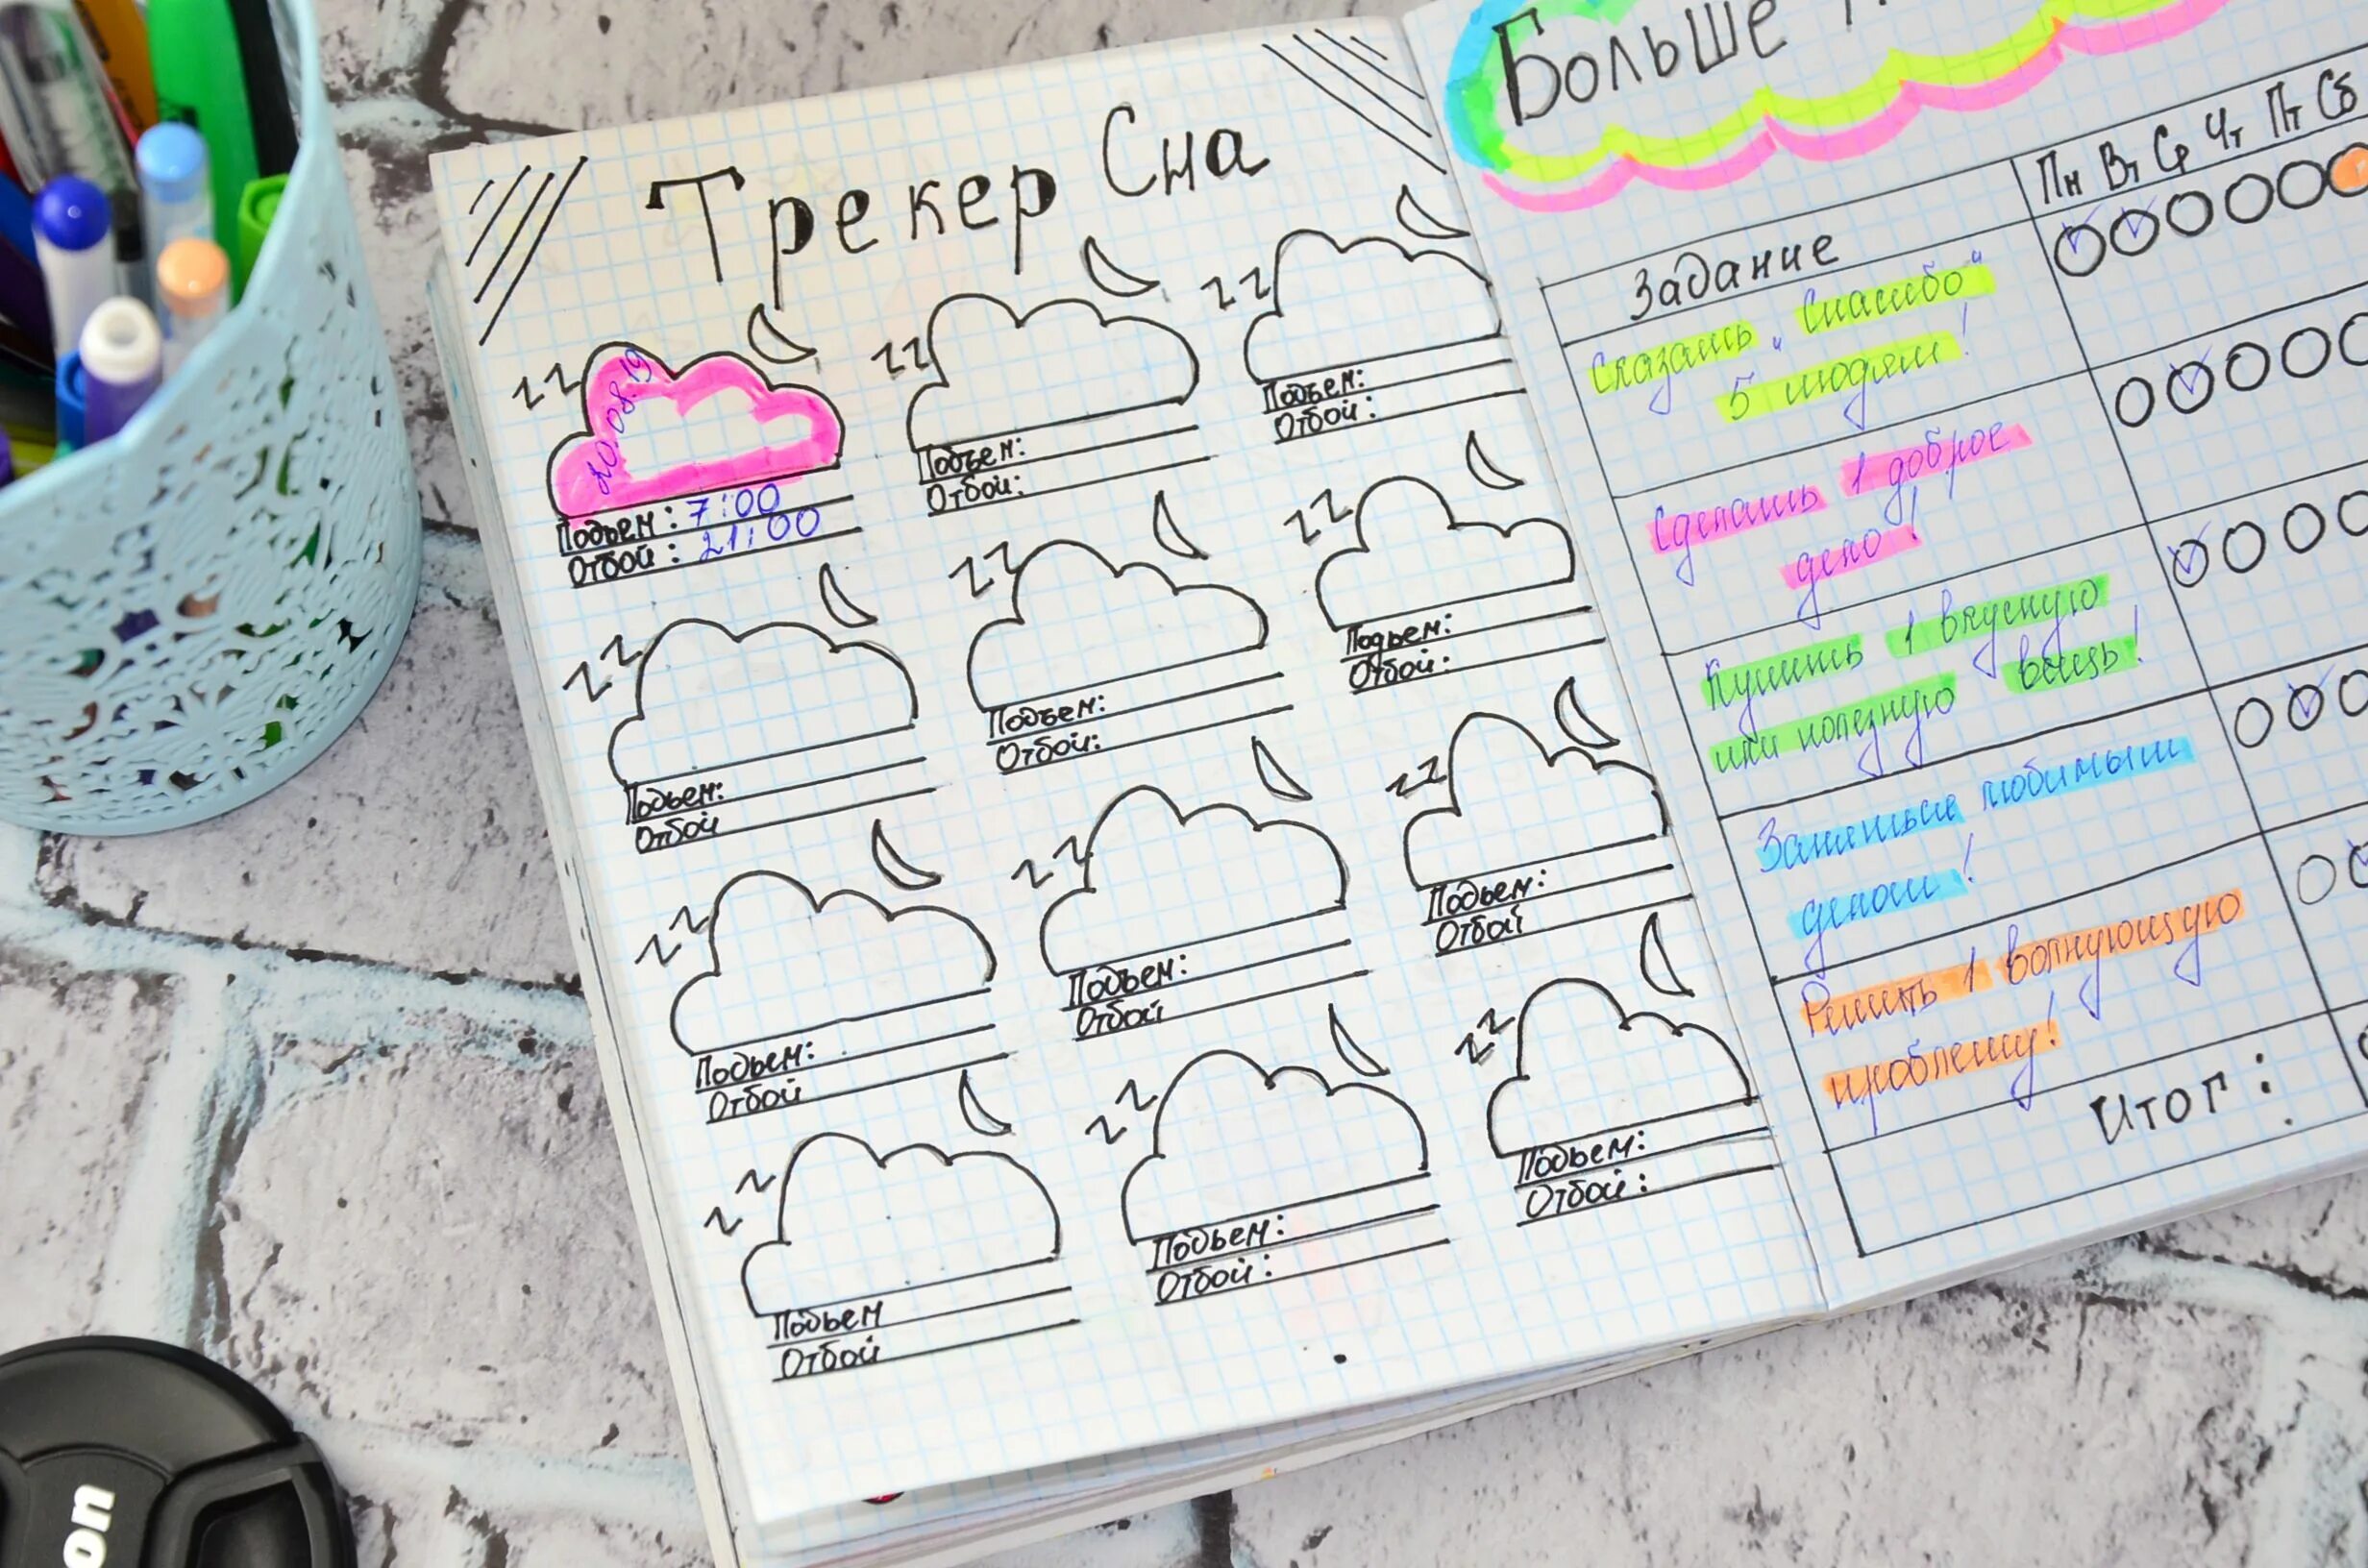 Трекер Сна
20.08.19
Подьем : 7:00
Отбой : 21:00
Подъем:
Отбой:
Подъем:
Отбой:
Подьем:
Отбой
Подъем:
Отбой:
Подьем:
Отбой:
Подьем:
Отбой
Подьем:
Отбой
Подьем:
Отбой
Подьем
Отбой
Подьем:
Отбой:
Подьем:
Отбой:
Больше
Задание
Пн Вт Ср Чт Пт Сб
Сказать „Спасибо"
5 людям!
Сделать 1 доброе
дело!
Купить 1 вкусную
или полезную вещь!
Заняться любимым
делом!
Решить 1 волнующую
проблему!
Итог :
on